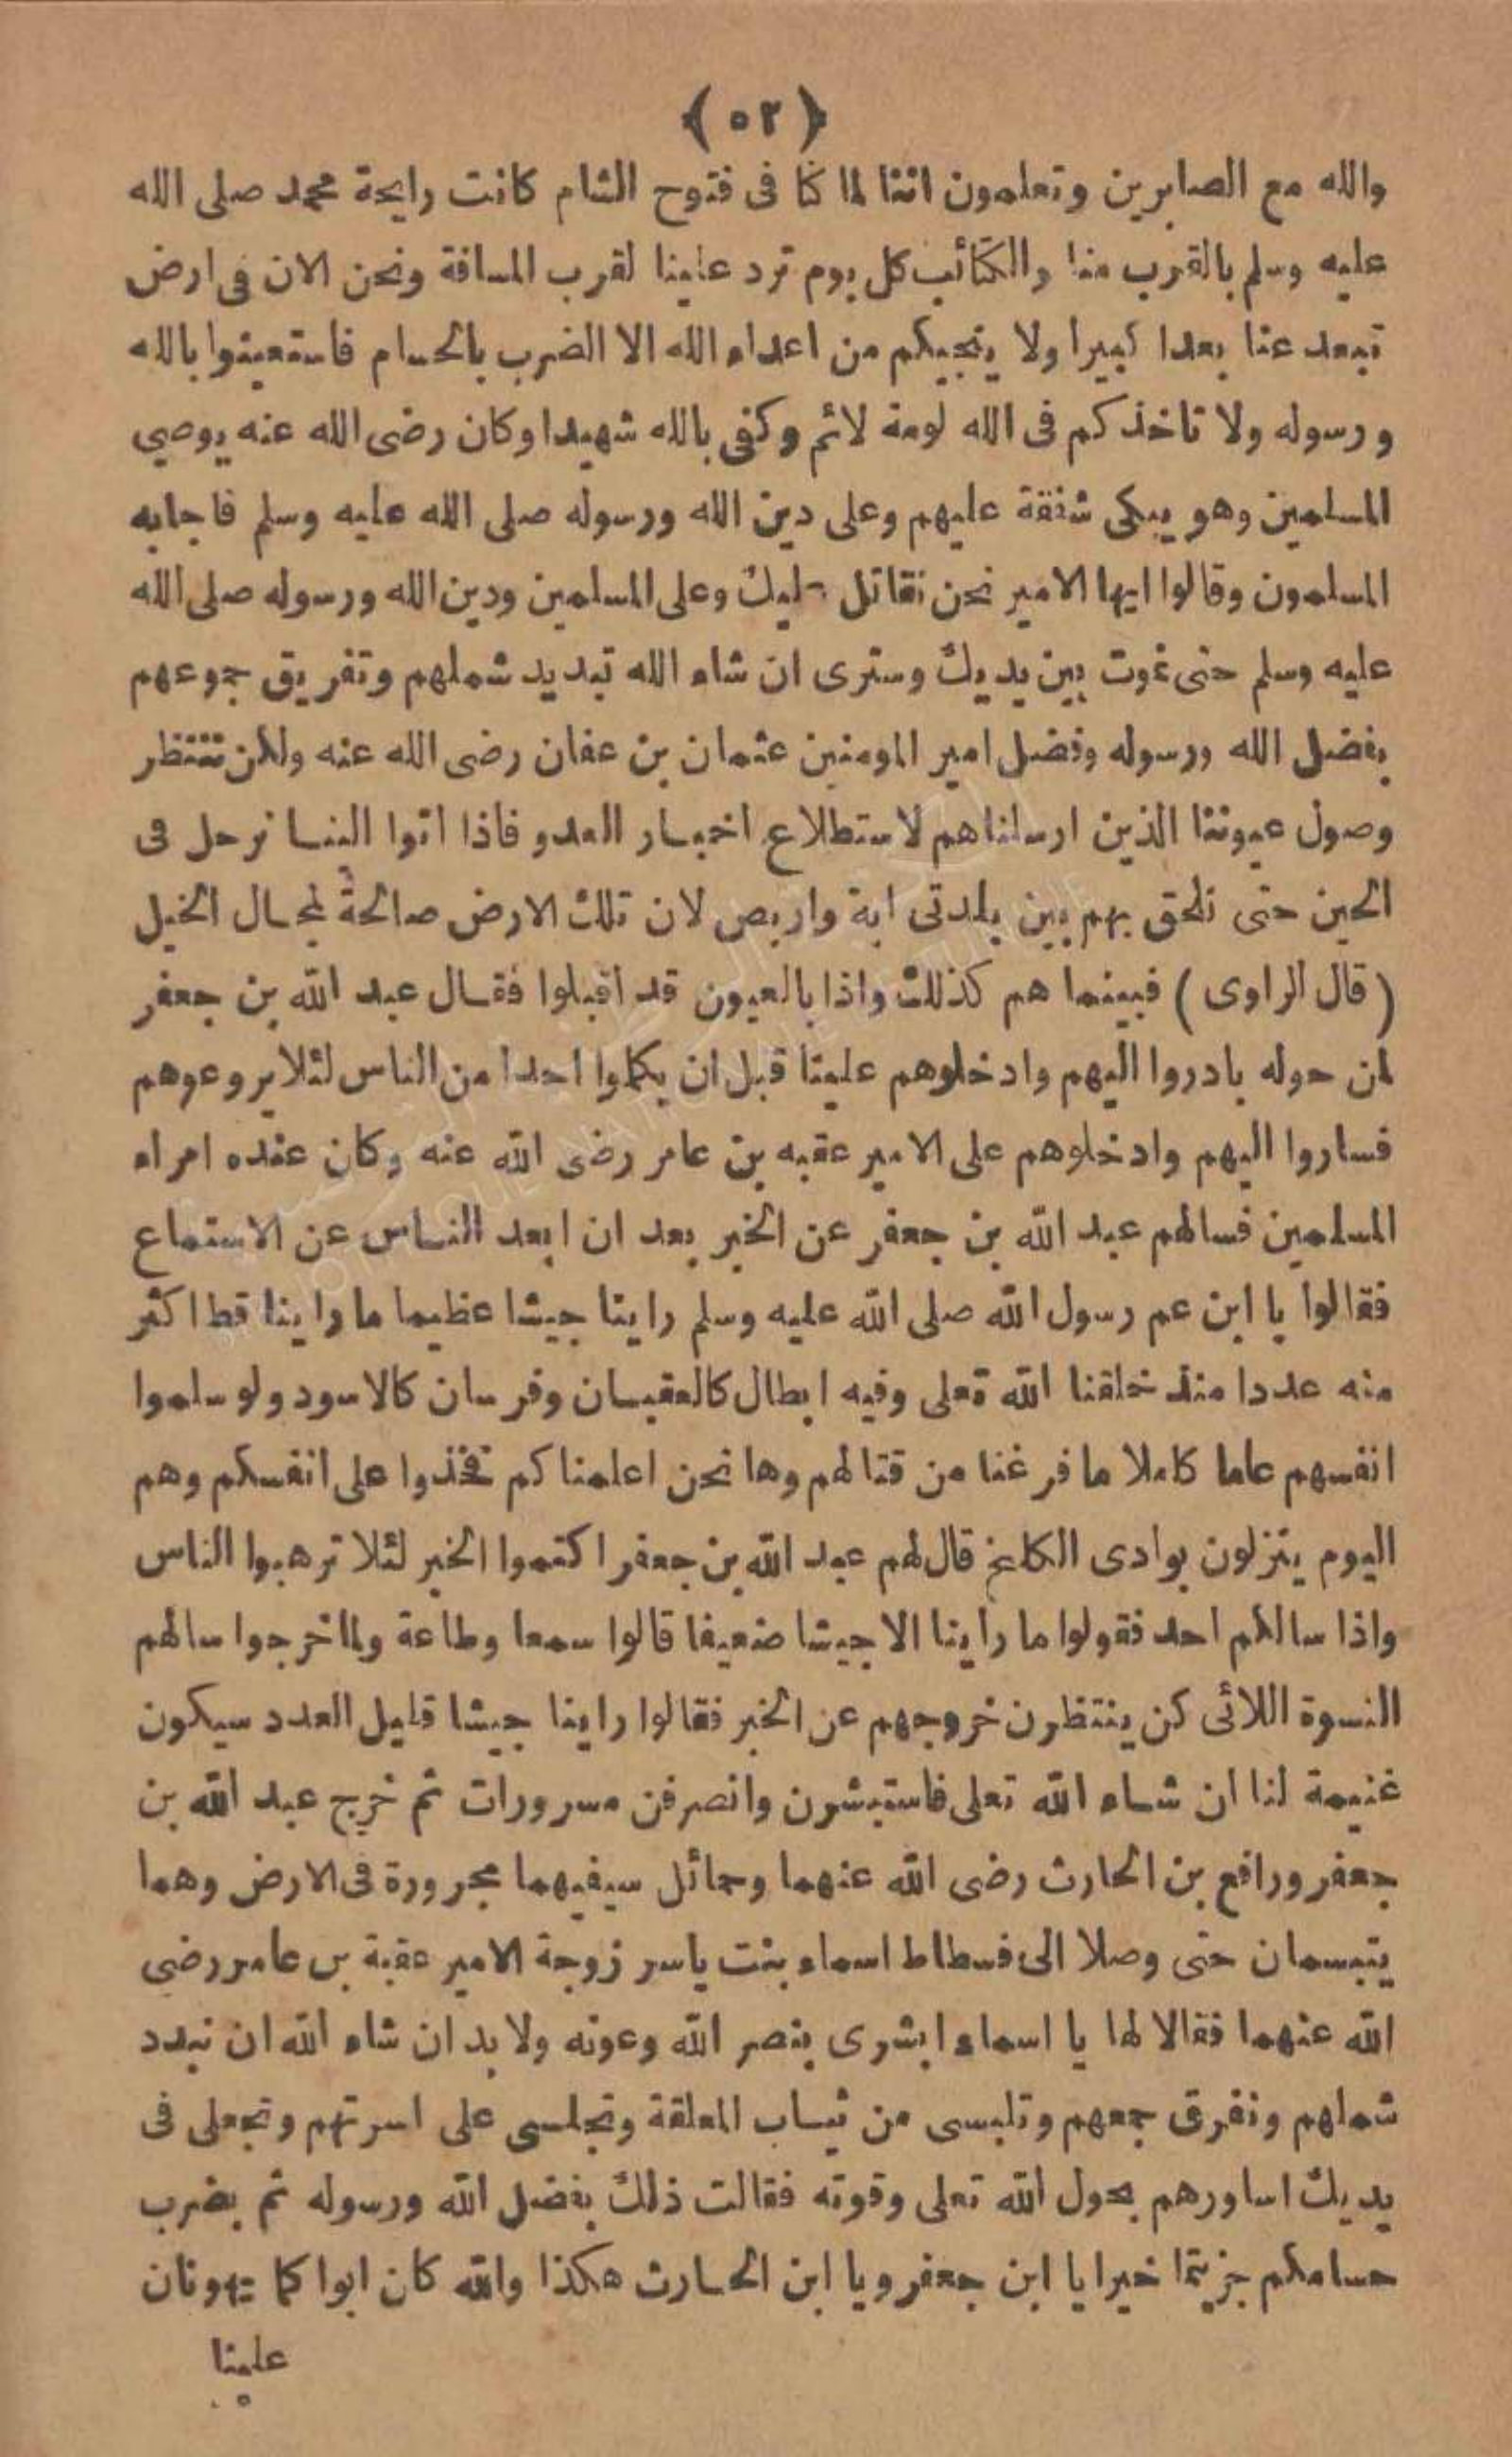 ﴿٥٢﴾
والله مع الصابرين وتعلمون اننا لما كنا فى فتوح الشام كانت رايحة محمد صلى الله
عليه وسلم بالقرب منا والكتائب كل يوم ترد علينا لقرب المسافة ونحن الان فى ارض
تبعد عنا بعدا كبيرا ولا ينجيكم من اعداء الله الا الضرب بالحسام فاستعينوا بالله
ورسوله ولا تاخذكم فى الله لومة لائم وكفى بالله شهيدا وكان رضى الله عنه يوصي
المسلمين وهو يبكى شفقة عليهم وعلى دين الله ورسوله صلى الله عليه وسلم فاجابه
المسلمون وقالوا ايها الامير نحن نقاتل عليك وعلى المسلمين ودين الله ورسوله صلى الله
عليه وسلم حتى نموت بين يديك وسترى ان شاء الله تبديد شملهم وتفريق جموعهم
بفضل الله ورسوله وفضل امير المومنين عثمان بن عفان رضى الله عنه ولكن ننتظر
وصول عيوننا الذين ارسلناهم لاستطلاع اخبار العدو فاذا اتوا الينا نرحل فى
الحين حتى نلحق بهم بين بلدتى ابة واربص لان تلك الارض صالحة لمجال الخيل
( قال الراوى ) فبينما هم كذلك واذا بالعيون قد اقبلوا فقال عبد الله بن جعفر
لمن حوله بادروا اليهم وادخلوهم علينا قبل ان يكلموا احدا من الناس لئلا يروعوهم
فساروا اليهم وادخلوهم على الامير عقبه بن عامر رضى الله عنه وكان عنده امراء
المسلمين فسالهم عبد الله بن جعفر عن الخبر بعد ان ابعد الناس عن الاستماع
فقالوا يا ابن عم رسول الله صلى الله عليه وسلم راينا جيشا عظيما ما راينا قط اكثر
منه عددا منذ خلقنا الله تعلى وفيه ابطال كالعقبان وفرسان كالاسود ولو سلموا
انفسهم عاما كاملا ما فرغنا من قتالهم وها نحن اعلمناكم فخذوا على انفسكم وهم
اليوم ينزلون بوادى الكلخ قال لهم عبد الله بن جعفر اكتموا الخبر لئلا ترهبوا الناس
واذا سالكم احد فقولوا ما راينا الا جيشا ضعيفا قالوا سمعا وطاعة ولما خرجوا سالهم
النسوة اللائى كن ينتظرن خروجهم عن الخبر فقالوا راينا جيشا قليل العدد سيكون
غنيمة لنا ان شاء الله تعلى فاستبشرن وانصرفن مسرورات ثم خرج عبد الله بن
جعفر ورافع بن الحارث رضى الله عنهما وحمائل سيفيهما مجرورة فى الارض وهما
يتبسمان حتى وصلا الى فسطاط اسماء بنت ياسر زوجة الامير عقبة بن عامر رضى
الله عنهما فقالا لها يا اسماء ابشرى بنصر الله وعونه ولا بد ان شاء الله ان نبدد
شملهم ونفرق جمعهم وتلبسى من ثياب المعلقة وتجلسى على اسرتهم وتجعلى فى
يديك اساورهم بحول الله تعلى وقوته فقالت ذلك بفضل الله ورسوله ثم بضرب
حسامكم جزيتما خيرا يا ابن جعفر ويا ابن الحارث هكذا والله كان ابوا كما يهونان
علينا